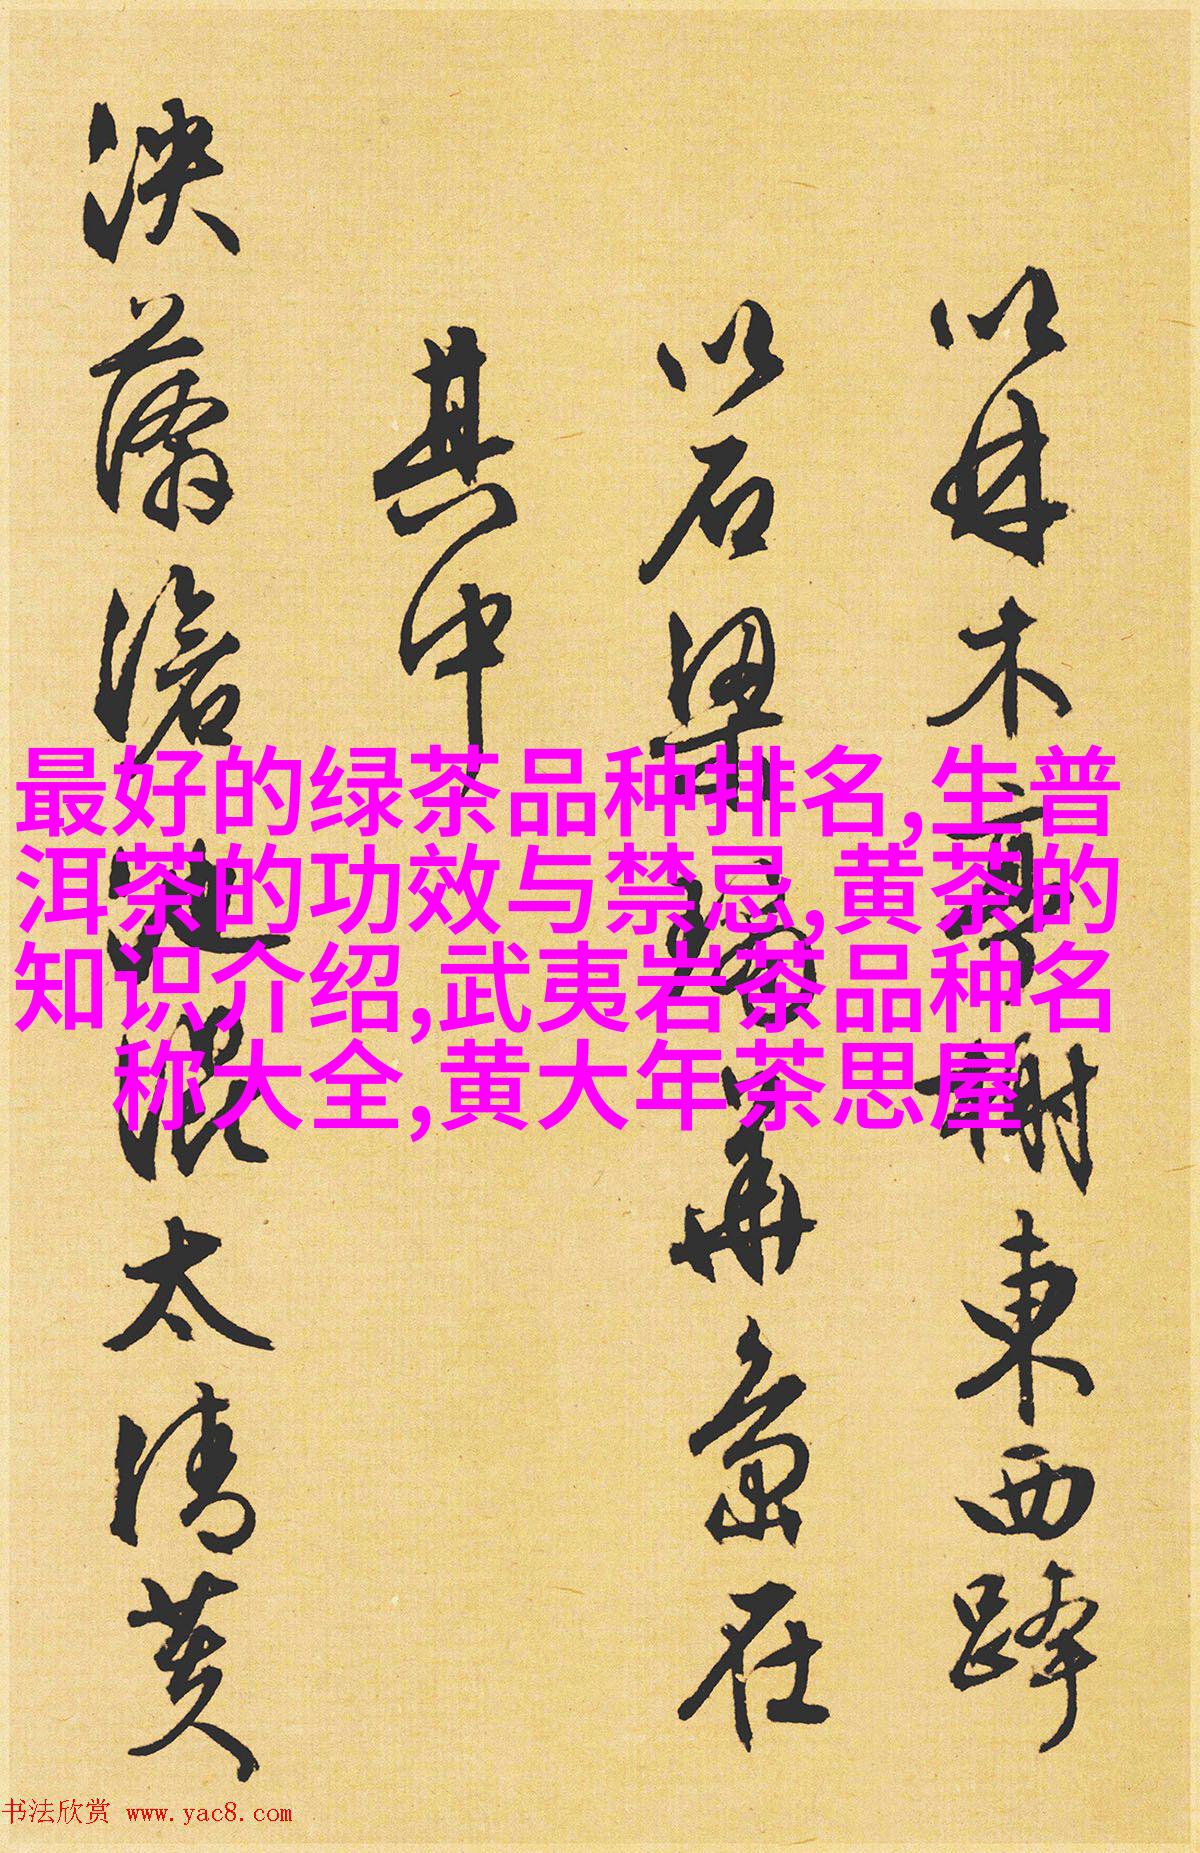 以林木臺榭東西跨
以石梁蹬華島在
其中
泱漭澹池混太清芰
最好的绿茶品种排名,生普
洱茶的功效与禁忌,黄茶的
知识介绍,武夷岩茶品种名
称大全,黄大年茶思屋
书法欣赏 www.yac8.com